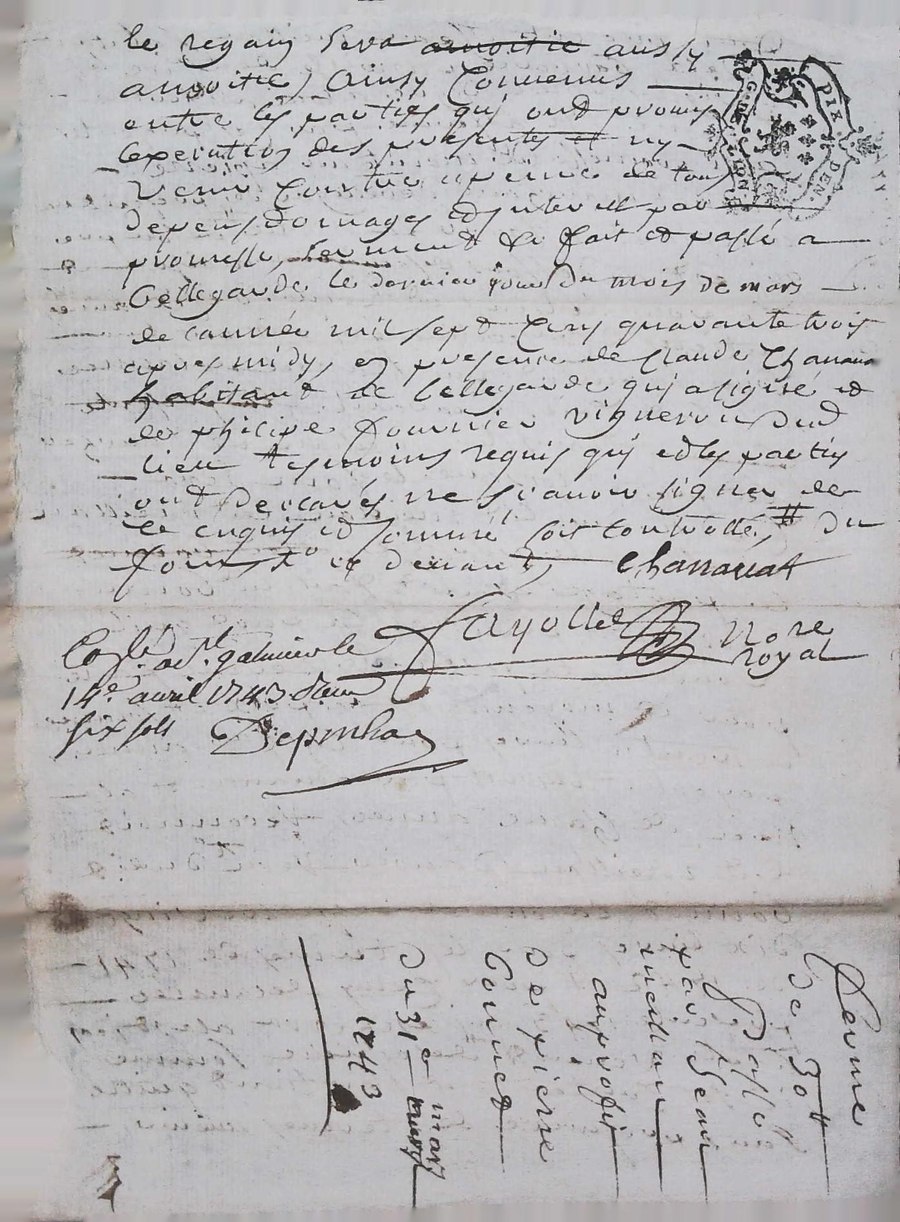 le regain sera amoitie aussy
amoitie, Ainsy Convenus
entre les parties qui ont promis
Lexecution des presentes et ny
venir Contre apeine de tous
depens domages et interest par
promesse, serment &c fait et passé a
bellegarde le dernier jour du mois de mars
de lannée mil sept Cens quarante trois
apres midy, en presence de Claude Chanavat
habitant de bellegarde qui a signé et
de philipe fournier vigneron dud
lieu tesmoins requis qui et les parties
ont declarés ne scavoir signer de
ce enquis et sommé, soit Controllé, # du
et devant, Chanavat
Fayolle Nore
royal
Coslé a st galmier le
14e avril 1743 Reçu
six sols
G. DE LION
DIX DEN.
Ferme
De 30 tt
Passé
par Jean
meillan
au profit
De pierre
Du 31e mars
1743